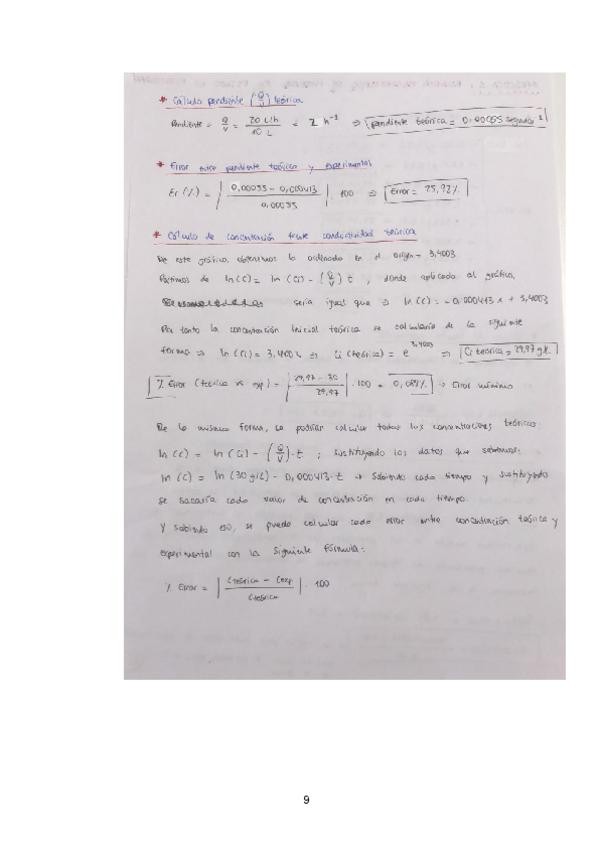 * Cálculo pendiente (Q/V) teórica
Pendiente = Q/V = 20 L/h / 10 L = 2 h⁻¹ => pendiente teórica = 0,00055 segundos⁻¹
* Error entre pendiente teórica y experimental
Er (%) = | 0,00055 - 0,000413 / 0,00055 | · 100 => Error = 25,92%
* Cálculo de concentración frente conductividad teórica
De este gráfico, obtenemos la ordenada en el origen = 3,4003
Partimos de ln(C) = ln(Ci) - (Q/V) t, donde aplicado al gráfico,
sería igual que => ln(C) = -0,000413 x + 3,4003
Por tanto la concentración inicial teórica se calcularía de la siguiente
forma => ln(Ci) = 3,4003 => Ci (teórica) = e^3,4003 => Ci teórica = 29,97 g/L
% Error (teórica vs exp) = | 29,97 - 30 / 29,97 | · 100 = 0,089% -> Error mínimo
De la misma forma, se podrían calcular todas las concentraciones teóricas:
ln(C) = ln(Ci) - (Q/V) · t ; sustituyendo los datos que sabemos:
ln(C) = ln(30 g/L) - 0,000413 · t -> Sabiendo cada tiempo y sustituyendo
se sacaría cada valor de concentración en cada tiempo.
Y sabiendo eso, se puede calcular cada error entre concentración teórica y
experimental con la siguiente fórmula:
% Error = | Cteórica - Cexp. / Cteórica | · 100
9